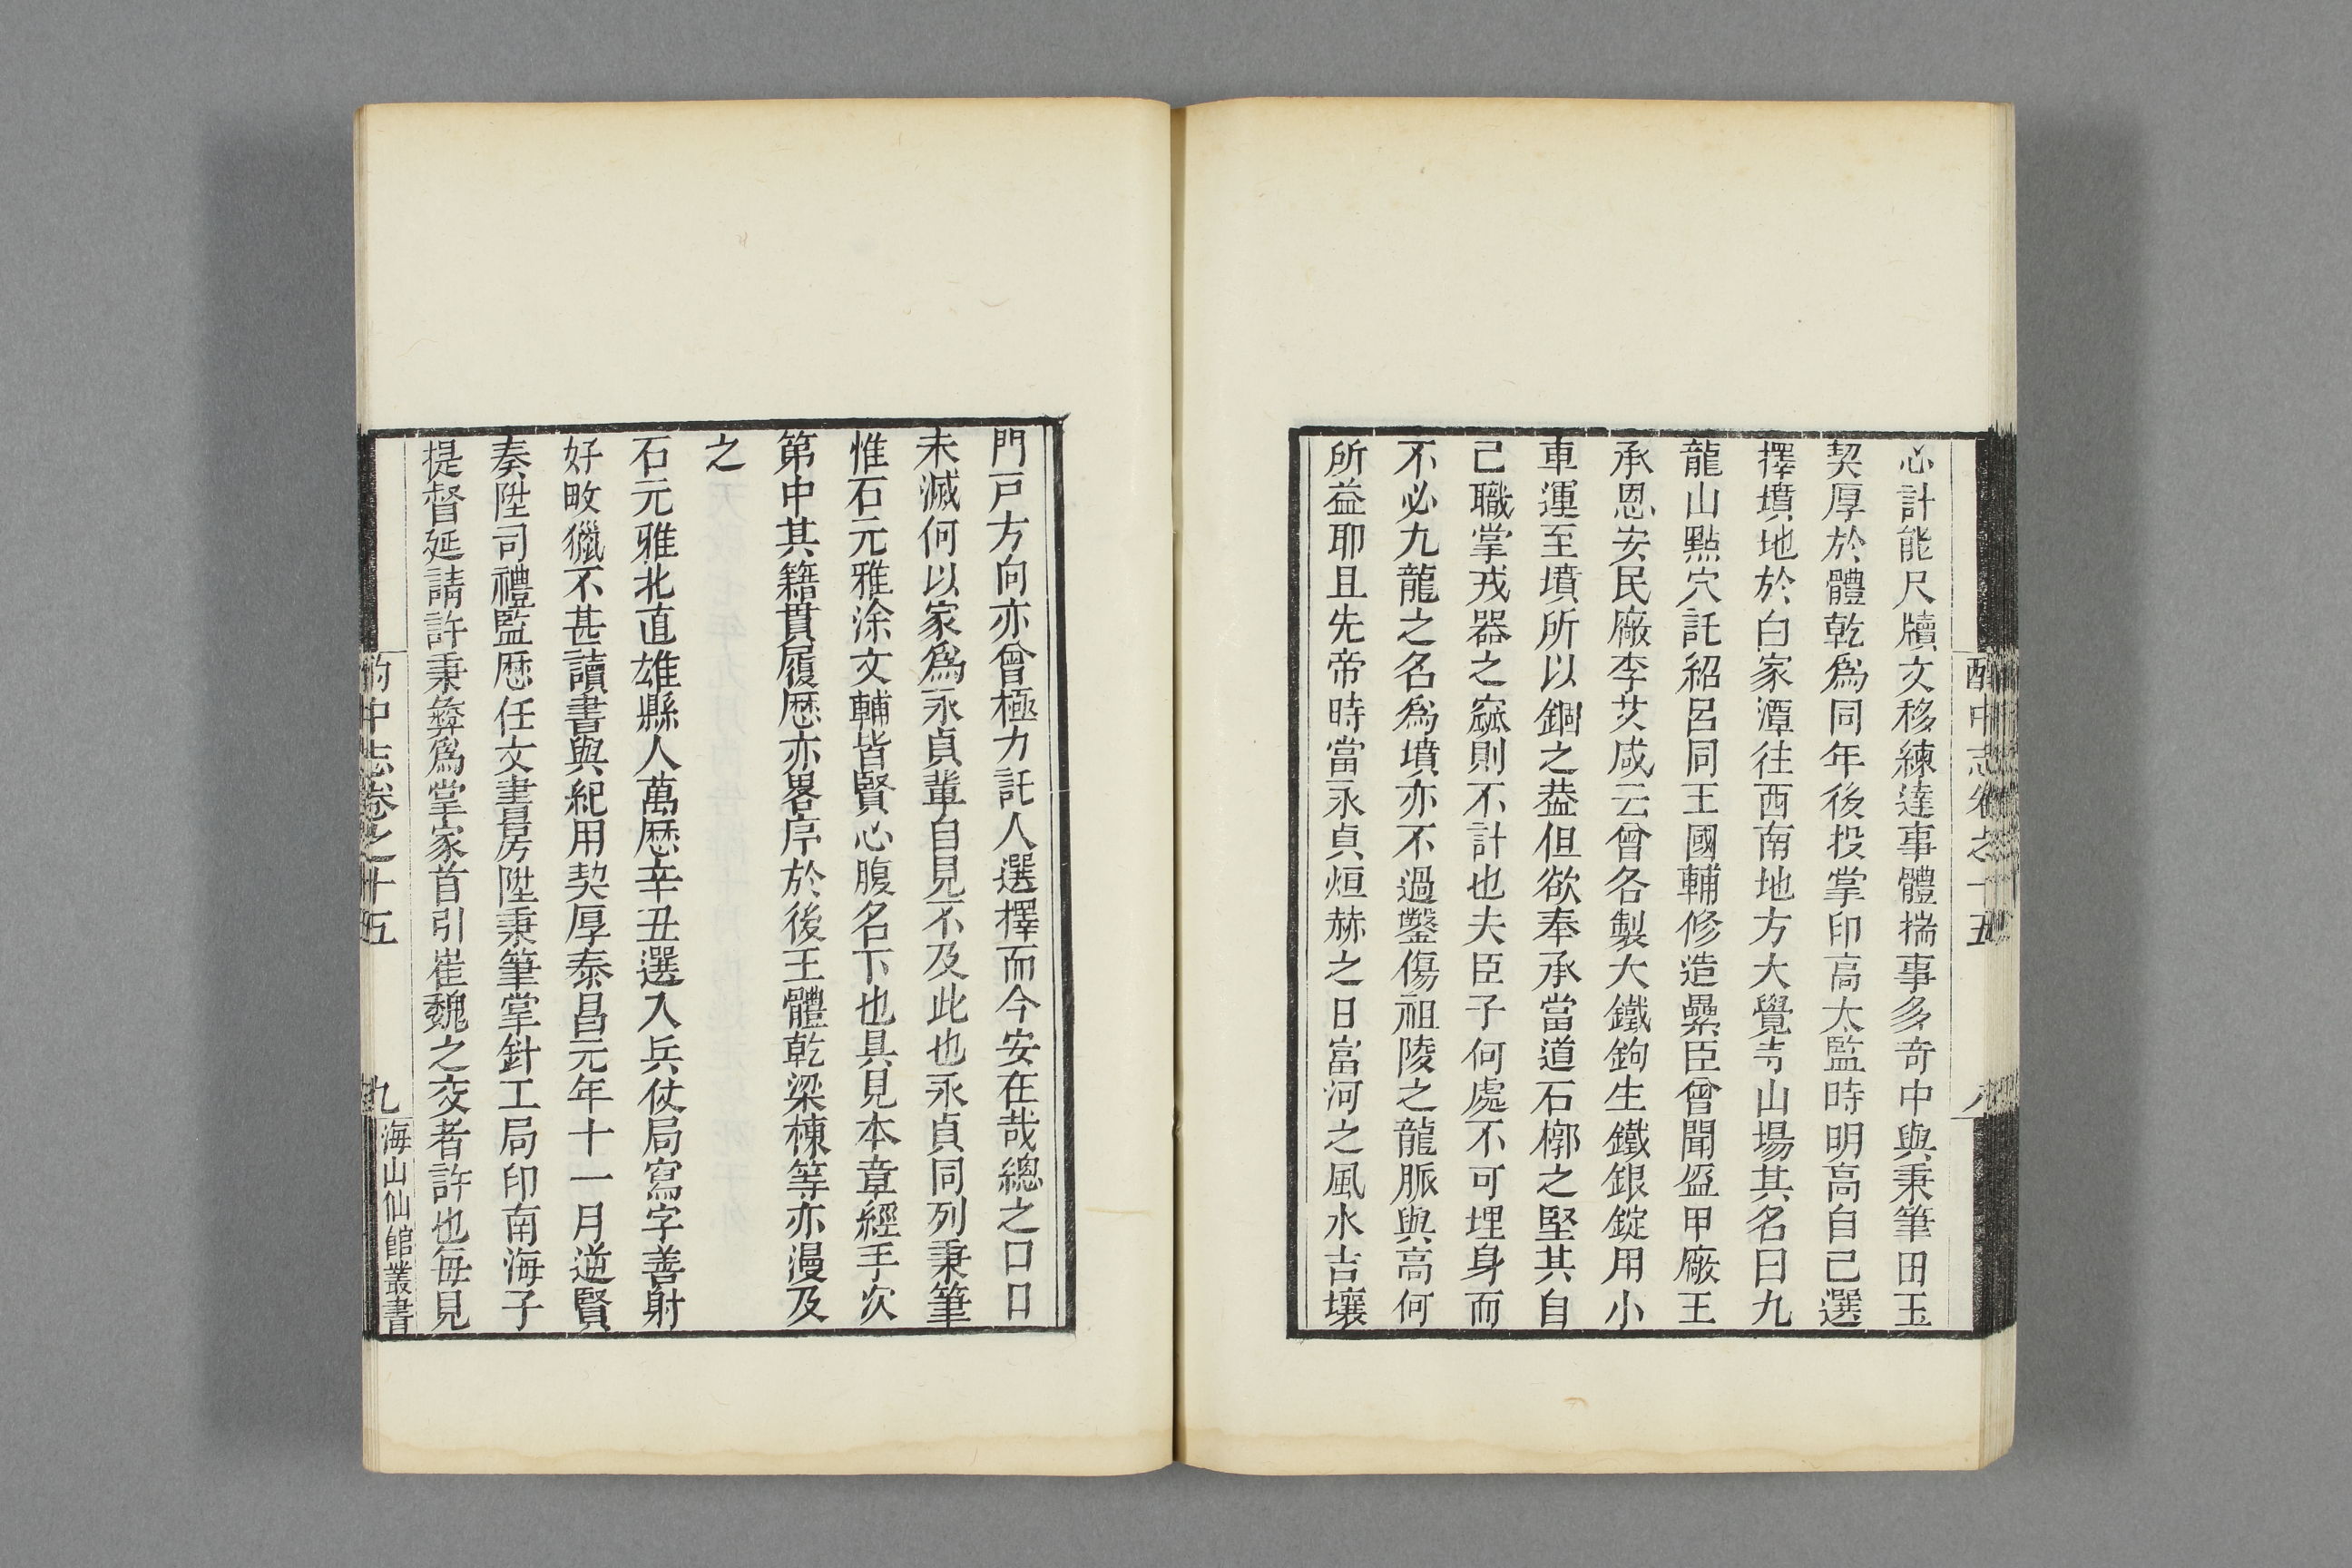 酌中志卷之十五
心計能尺牘文移練達事體揣事多奇中與秉筆田玉
契厚於體乾爲同年後投掌印高太監時明高自己選
擇墳地於白家潭往西南地方大覺寺山場其名曰九
龍山點穴託紹呂同王國輔修造纍臣曾聞盔甲廠王
承恩安民廠李艾咸云曾各製大鐵鉤生鐵銀錠用小
車運至墳所以錮之葢但欲奉承當道石槨之堅其自
己職掌戎器之窳則不計也夫臣子何處不可埋身而
不必九龍之名爲墳亦不過鑿傷祖陵之龍脈與高何
所益耶且先帝時當永貞烜赫之日富河之風水吉壤
門戸方向亦曾極力託人選擇而今安在哉總之口口
未滅何以家爲永貞輩自見不及此也永貞同列秉筆
惟石元雅涂文輔皆賢心腹名下也具見本章經手次
第中其籍貫履歷亦畧序於後王體乾梁棟等亦漫及
之
石元雅北直雄縣人萬歷辛丑選入兵仗局寫字善射
好畋獵不甚讀書與紀用契厚泰昌元年十一月逆賢
奏陞司禮監歷任文書房陞秉筆掌針工局印南海子
提督延請許秉彝爲掌家首引崔魏之交者許也每見
酌中志卷之十五
九
海山仙館叢書